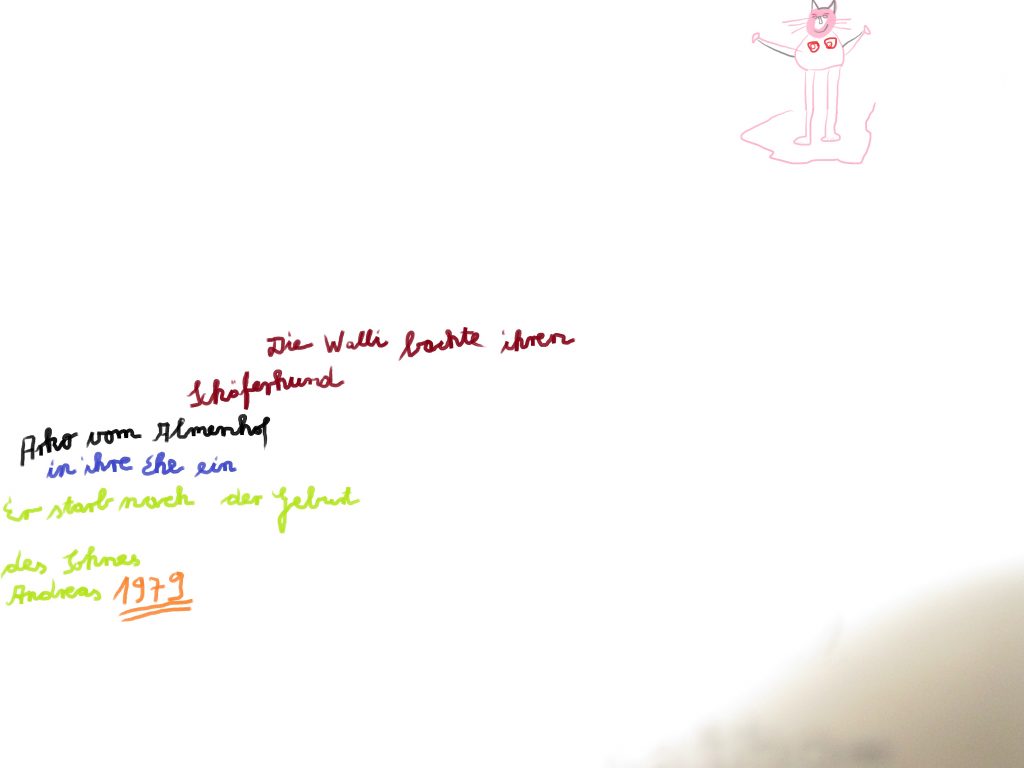 Die Walli bachte ihren
Schäferhund
Arko vom Almenhof
in ihre Ehe ein
Er starb nach der Geburt
des Sohnes
Andreas 1979